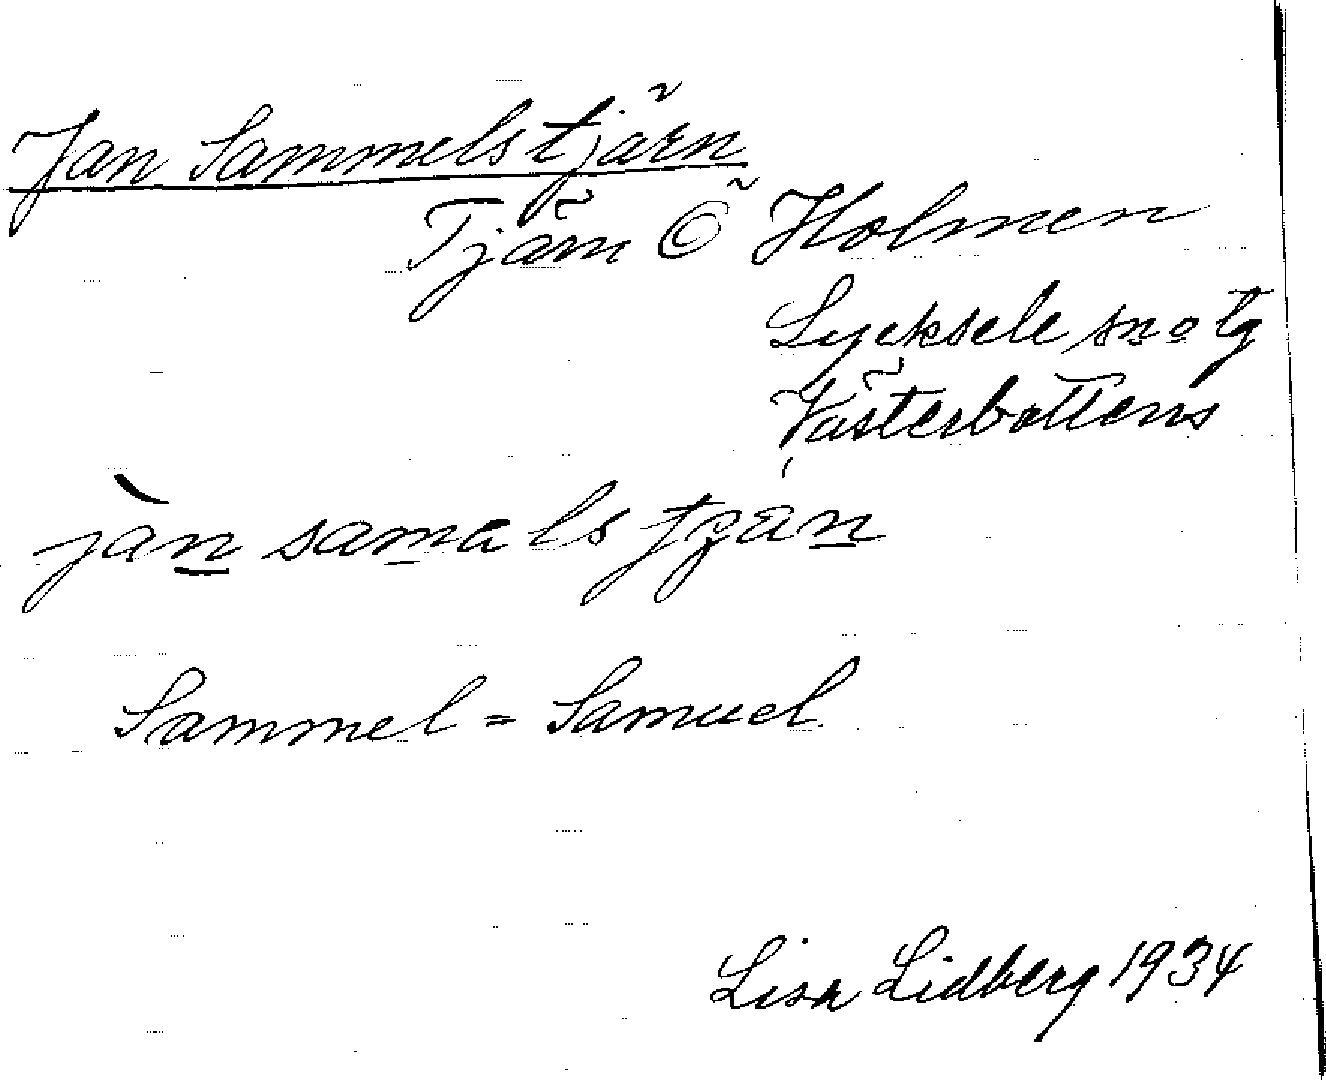 Jan Sammelstjärn
Tjärn Ö Holmen
Lycksele sn o tg
Västerbottens
jàn samals
Sammel = Samuel.
Lisa Lidberg 1934